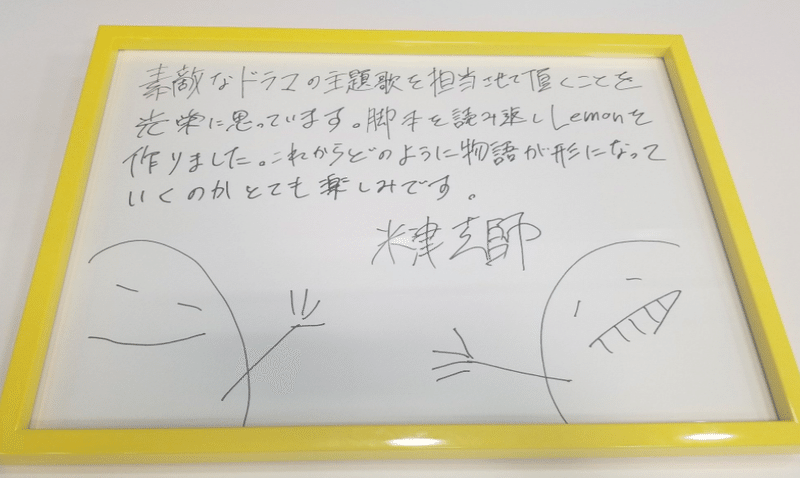 素敵なドラマの主題歌を担当させて頂くことを
光栄に思っています。脚本を読み返しLemonを
作りました。これからどのように物語が形になって
いくのかとても楽しみです。
米津玄師